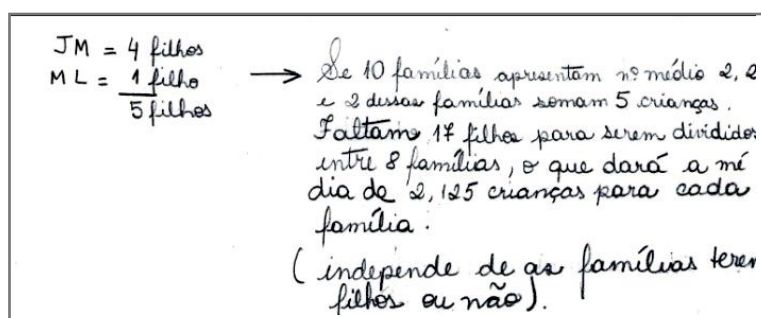 JM = 4 filhos
ML = 1 filho
5 filhos
→ Se 10 famílias apresentam nº médio 2, 2
e 2 dessas famílias somam 5 crianças.
Faltam 17 filhos para serem divididos
entre 8 famílias, o que dará a mé
dia de 2,125 crianças para cada
família.
( independe de as famílias terem
filhos ou não).